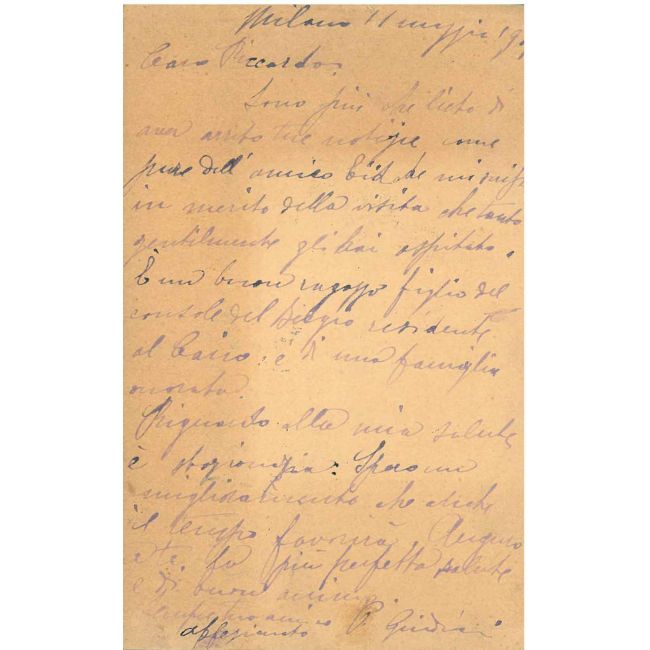 Milano 11 maggio
Caro Riccardo.
Sono più che lieto di
aver avuto tue notizie come
pure dell'amico Eid
in merito della visita che tanto
gentilmente gli hai ospitato.
È un buon ragazzo figlio del
console del Belgio residente
al Cairo: è di una famiglia
onorata.
Riguardo alla mia salute
è stazionaria: Spero un
miglioramento che anche
il tempo favorirà. Auguro
a te la più perfetta salute
e di buon animo.
tuo amico
affezionato P.